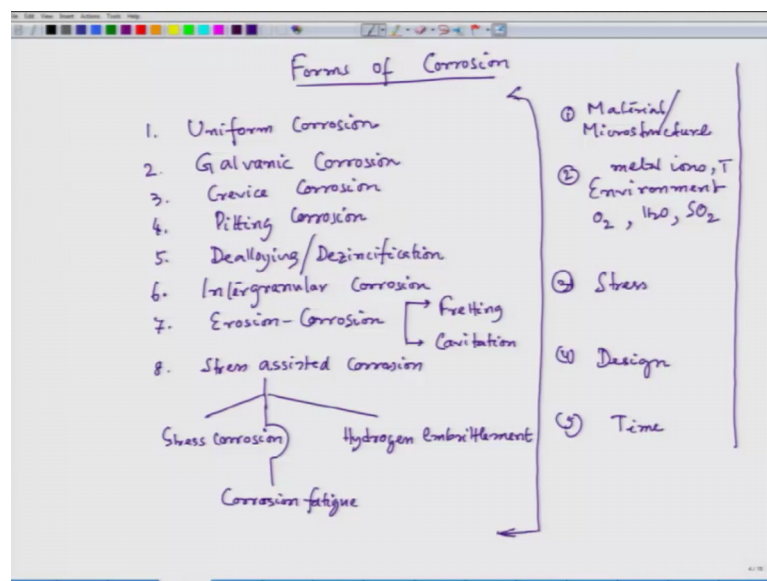 File Edit View Insert Actions Tools Help
Forms of Corrosion
1. Uniform Corrosion
2. Galvanic Corrosion
3. Crevice Corrosion
4. Pitting Corrosion
5. Dealloying/Dezincification
6. Intergranular Corrosion
7. Erosion-Corrosion
Fretting
Cavitation
8. Stress assisted Corrosion
Stress Corrosion
Hydrogen Embrittlement
Corrosion fatigue
① Material/
Microstructure
② metal ions, T
Environment
O2, H2O, SO2
③ Stress
④ Design
⑤ Time